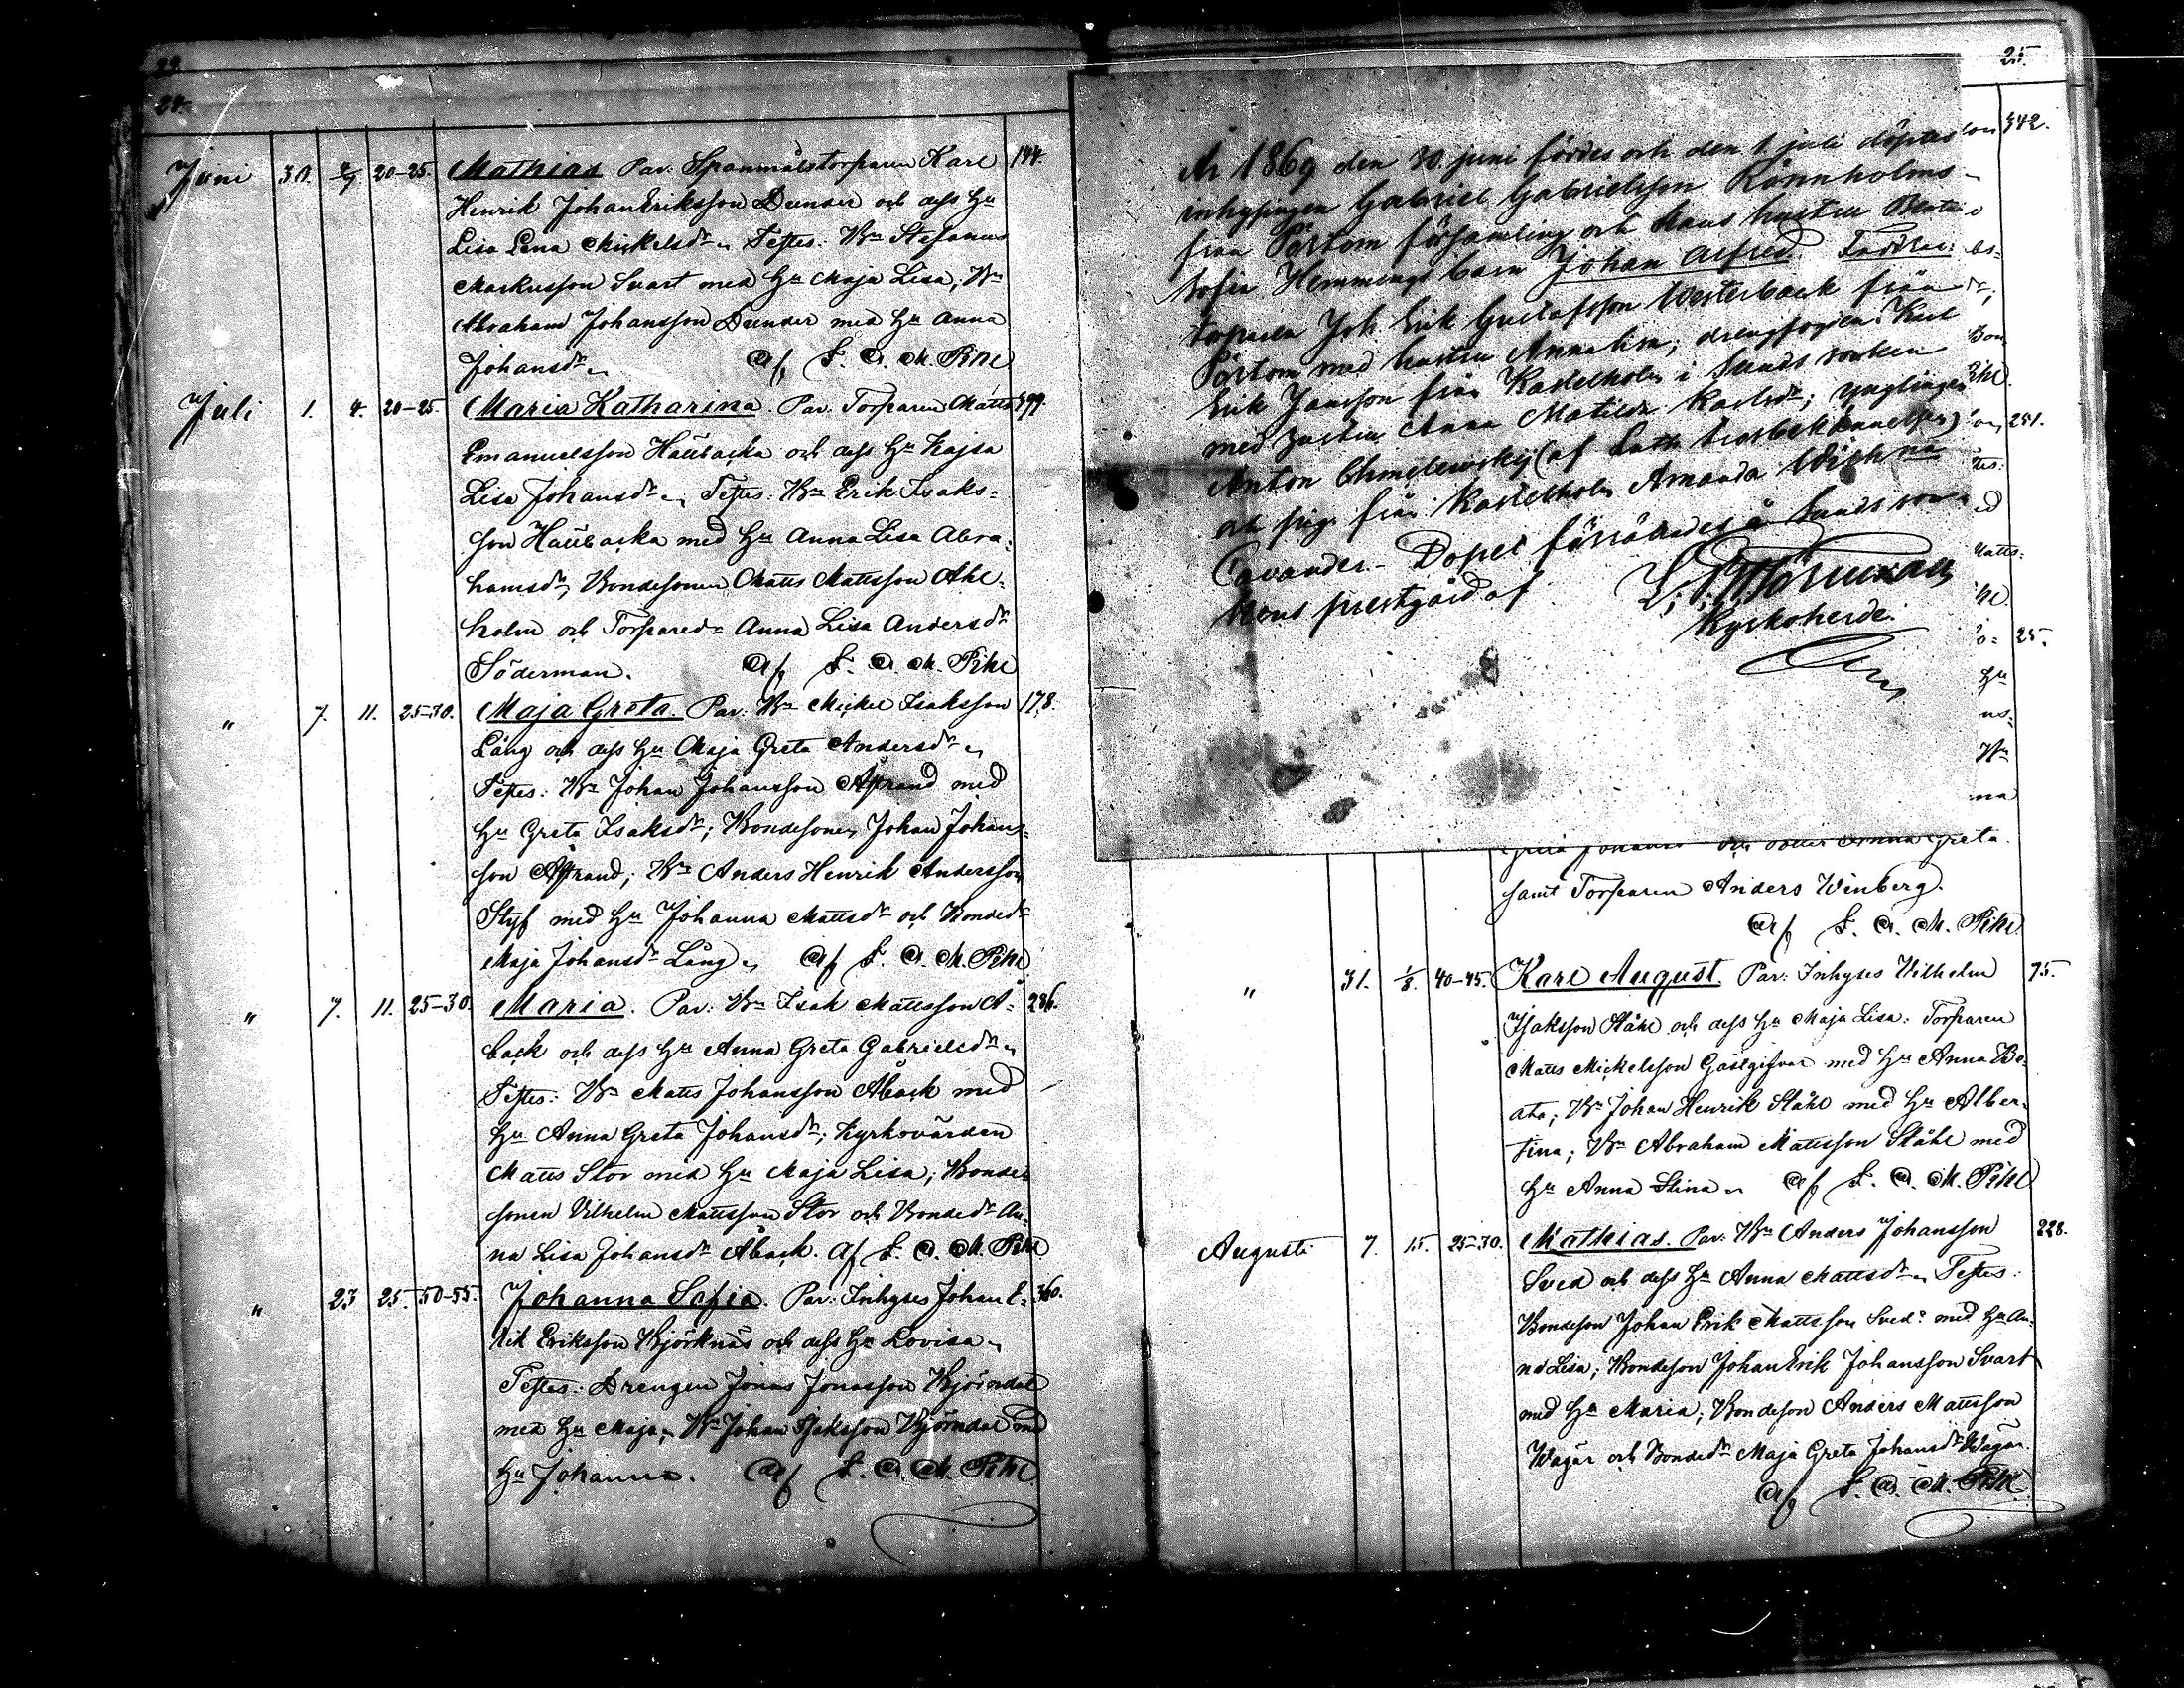 22.
24.
Juni 30. 2/7 20-25. Mathias Par: Spanmålstorparen Karl 144.
Henrik Johan Eriksson Dunder och dess Hu
Lisa Lena Mickelsdr. Testes: Bn Stefanus
Markusson Svart med Hu Maja Lisa; Bn
Abraham Johansson Dunder med Hu Anna
Johansdr. Af F. A. M. Pihl
Juli 1. 4. 20-25. Maria Katharina. Par. Torparen Matts 399.
Emanuelsson Hällbacka och dess Hu Kajsa
Lisa Johansdr. Testes: Bn Erik Isaks-
son Hällbacka med Hu Anna Lisa Abra-
hamsdr; Bondesonen Matts Mattsson Ahl-
holm och Torparedr Anna Lisa Andersdr
Söderman. Af F. A. M. Pihl
" 7. 11. 25-30. Maja Greta. Par: Bn Mickel Isaksson 178.
Lång och dess Hu Maja Greta Andersdr.
Testes: Bn Johan Johansson Åstrand med
Hu Greta Isaksdr; Bondesonen Johan Johans-
son Åstrand; Bn Anders Henrik Andersson
Styf med Hu Johanna Mattsdr och Bondedr
Maja Johansdr Lång. Af F. A. M. Pihl
" 7. 11. 25-30. Maria. Par: Bn Isak Mattsson Å- 286.
back och dess Hu Anna Greta Gabrielsdr.
Testes: Bn Matts Johansson Åback med
Hu Anna Greta Johansdr; Kyrkovärden
Matts Stor med Hu Maja Lisa; Bonde-
sonen Vilhelm Mattsson Stor och Bondedr An-
na Lisa Johansdr Åback. Af F. A. M. Pihl
" 23 25. 50-55. Johanna Sofia. Par: Inhyses Johan E- 360.
rik Eriksson Björknäs och dess Hu Lovisa.
Testes: Drengen Jonas Jonasson Björndal
med Hu Maja; Bn Johan Isaksson Björndal med
Hu Johanna. Af F. A. M. Pihl
25.
År 1869 den 30. juni föddes och den 1. juli döptes
inhysingen Gabriel Gabrielsson Rönnholms
från Pörtom församling och hans hustru
Sofia Hemmings barn Johan Alfred. Faddrar:
torparen Joh. Erik Gustafsson Westerback från
Pörtom med hustru Anna Lisa; drengfogden Karl
Erik Jansson från Kastelholm i Sunds socken
med hustru Anna Matilda Karlsdr; ynglingen
Anton Chmelewsky (af Luth. trosbekännelsen)
och pig. från Kastelholm Amanda
Cavander. Dopet förrättades å Sunds
prestgård af
Kyrkoherde.
342.
251.
25.
samt Torparen Anders Winberg.
Af F. A. M. Pihl
" 31. 1/8. 40-45. Karl August. Par: Inhyses Vilhelm 75.
Isaksson Ståhl och dess Hu Maja Lisa: Torparen
Matts Mickelsson Gästgifvar med Hu Anna Be-
ata; Bn Johan Henrik Ståhl med Hu Alber-
tina; Bn Abraham Mattsson Ståhl med
Hu Anna Stina. Af F. A. M. Pihl
Augusti 7. 15. 25-30. Mathias. Par: Bn Anders Johansson 228.
Sved och dess Hu Anna Mattsdr. Testes:
Bondeson Johan Erik Mattsson Sved med Hu An-
na Lisa; Bondeson Johan Erik Johansson Svart
med Hu Maria; Bondeson Anders Mattsson
Wägar och Bondedr Maja Greta Johansdr Wägar.
Af F. A. M. Pihl